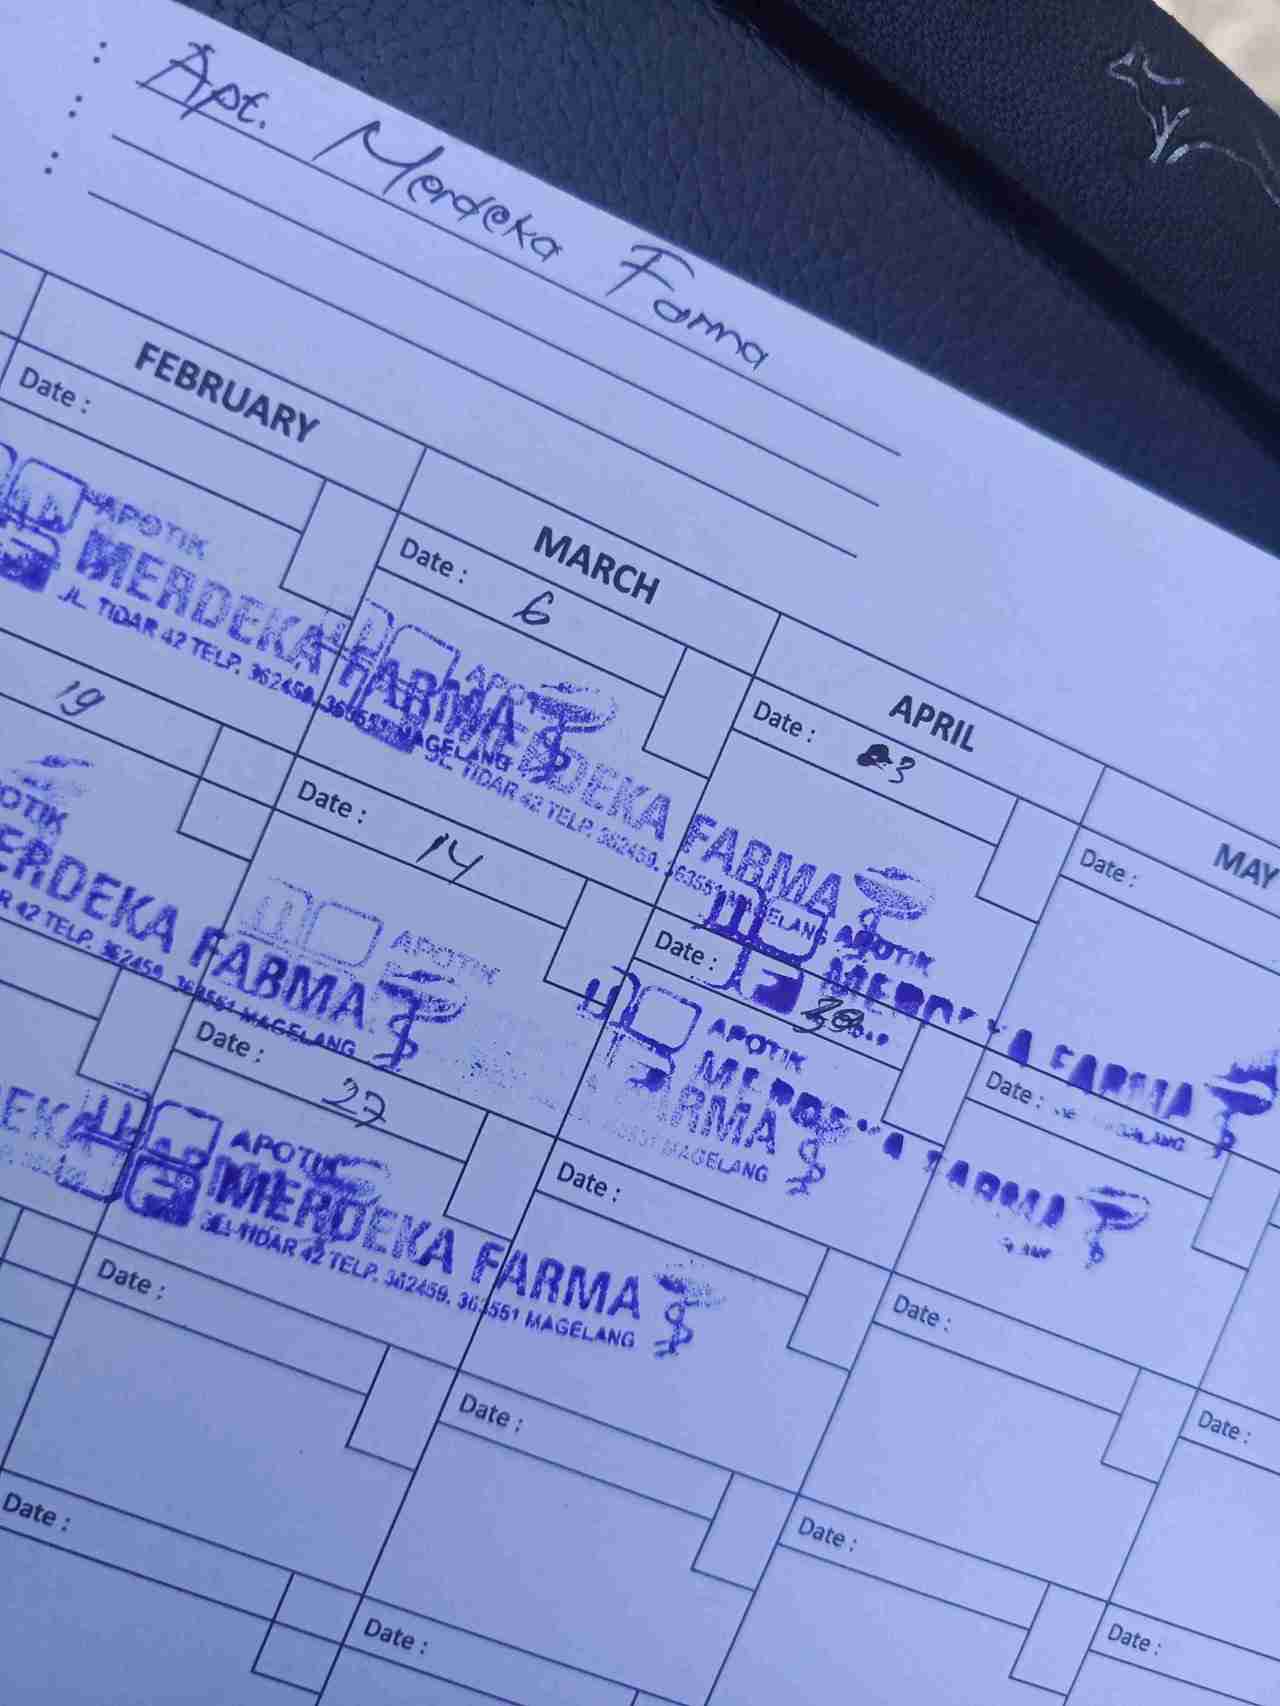 Apt. Merdeka Farma
FEBRUARY
MARCH
APRIL
MAY
Date :
Date : 6
Date : 3
Date :
APOTIK
MERDEKA FARMA
JL. TIDAR 42 TELP. 362459, 363551 MAGELANG
APOTIK
MERDEKA FARMA
JL. TIDAR 42 TELP. 362459, 363551 MAGELANG
APOTIK
MERDEKA FARMA
19
Date : 14
Date :
Date :
OTIK
ERDEKA FARMA
R 42 TELP. 362459, 363551 MAGELANG
APOTIK
FARMA
363551 MAGELANG
APOTIK
MERDEKA FARMA
Date : 27
Date :
Date :
Date :
EKA
APOTIK
MERDEKA FARMA
JL. TIDAR 42 TELP. 362459, 363551 MAGELANG
Date :
Date :
Date :
Date :
Date :
Date :